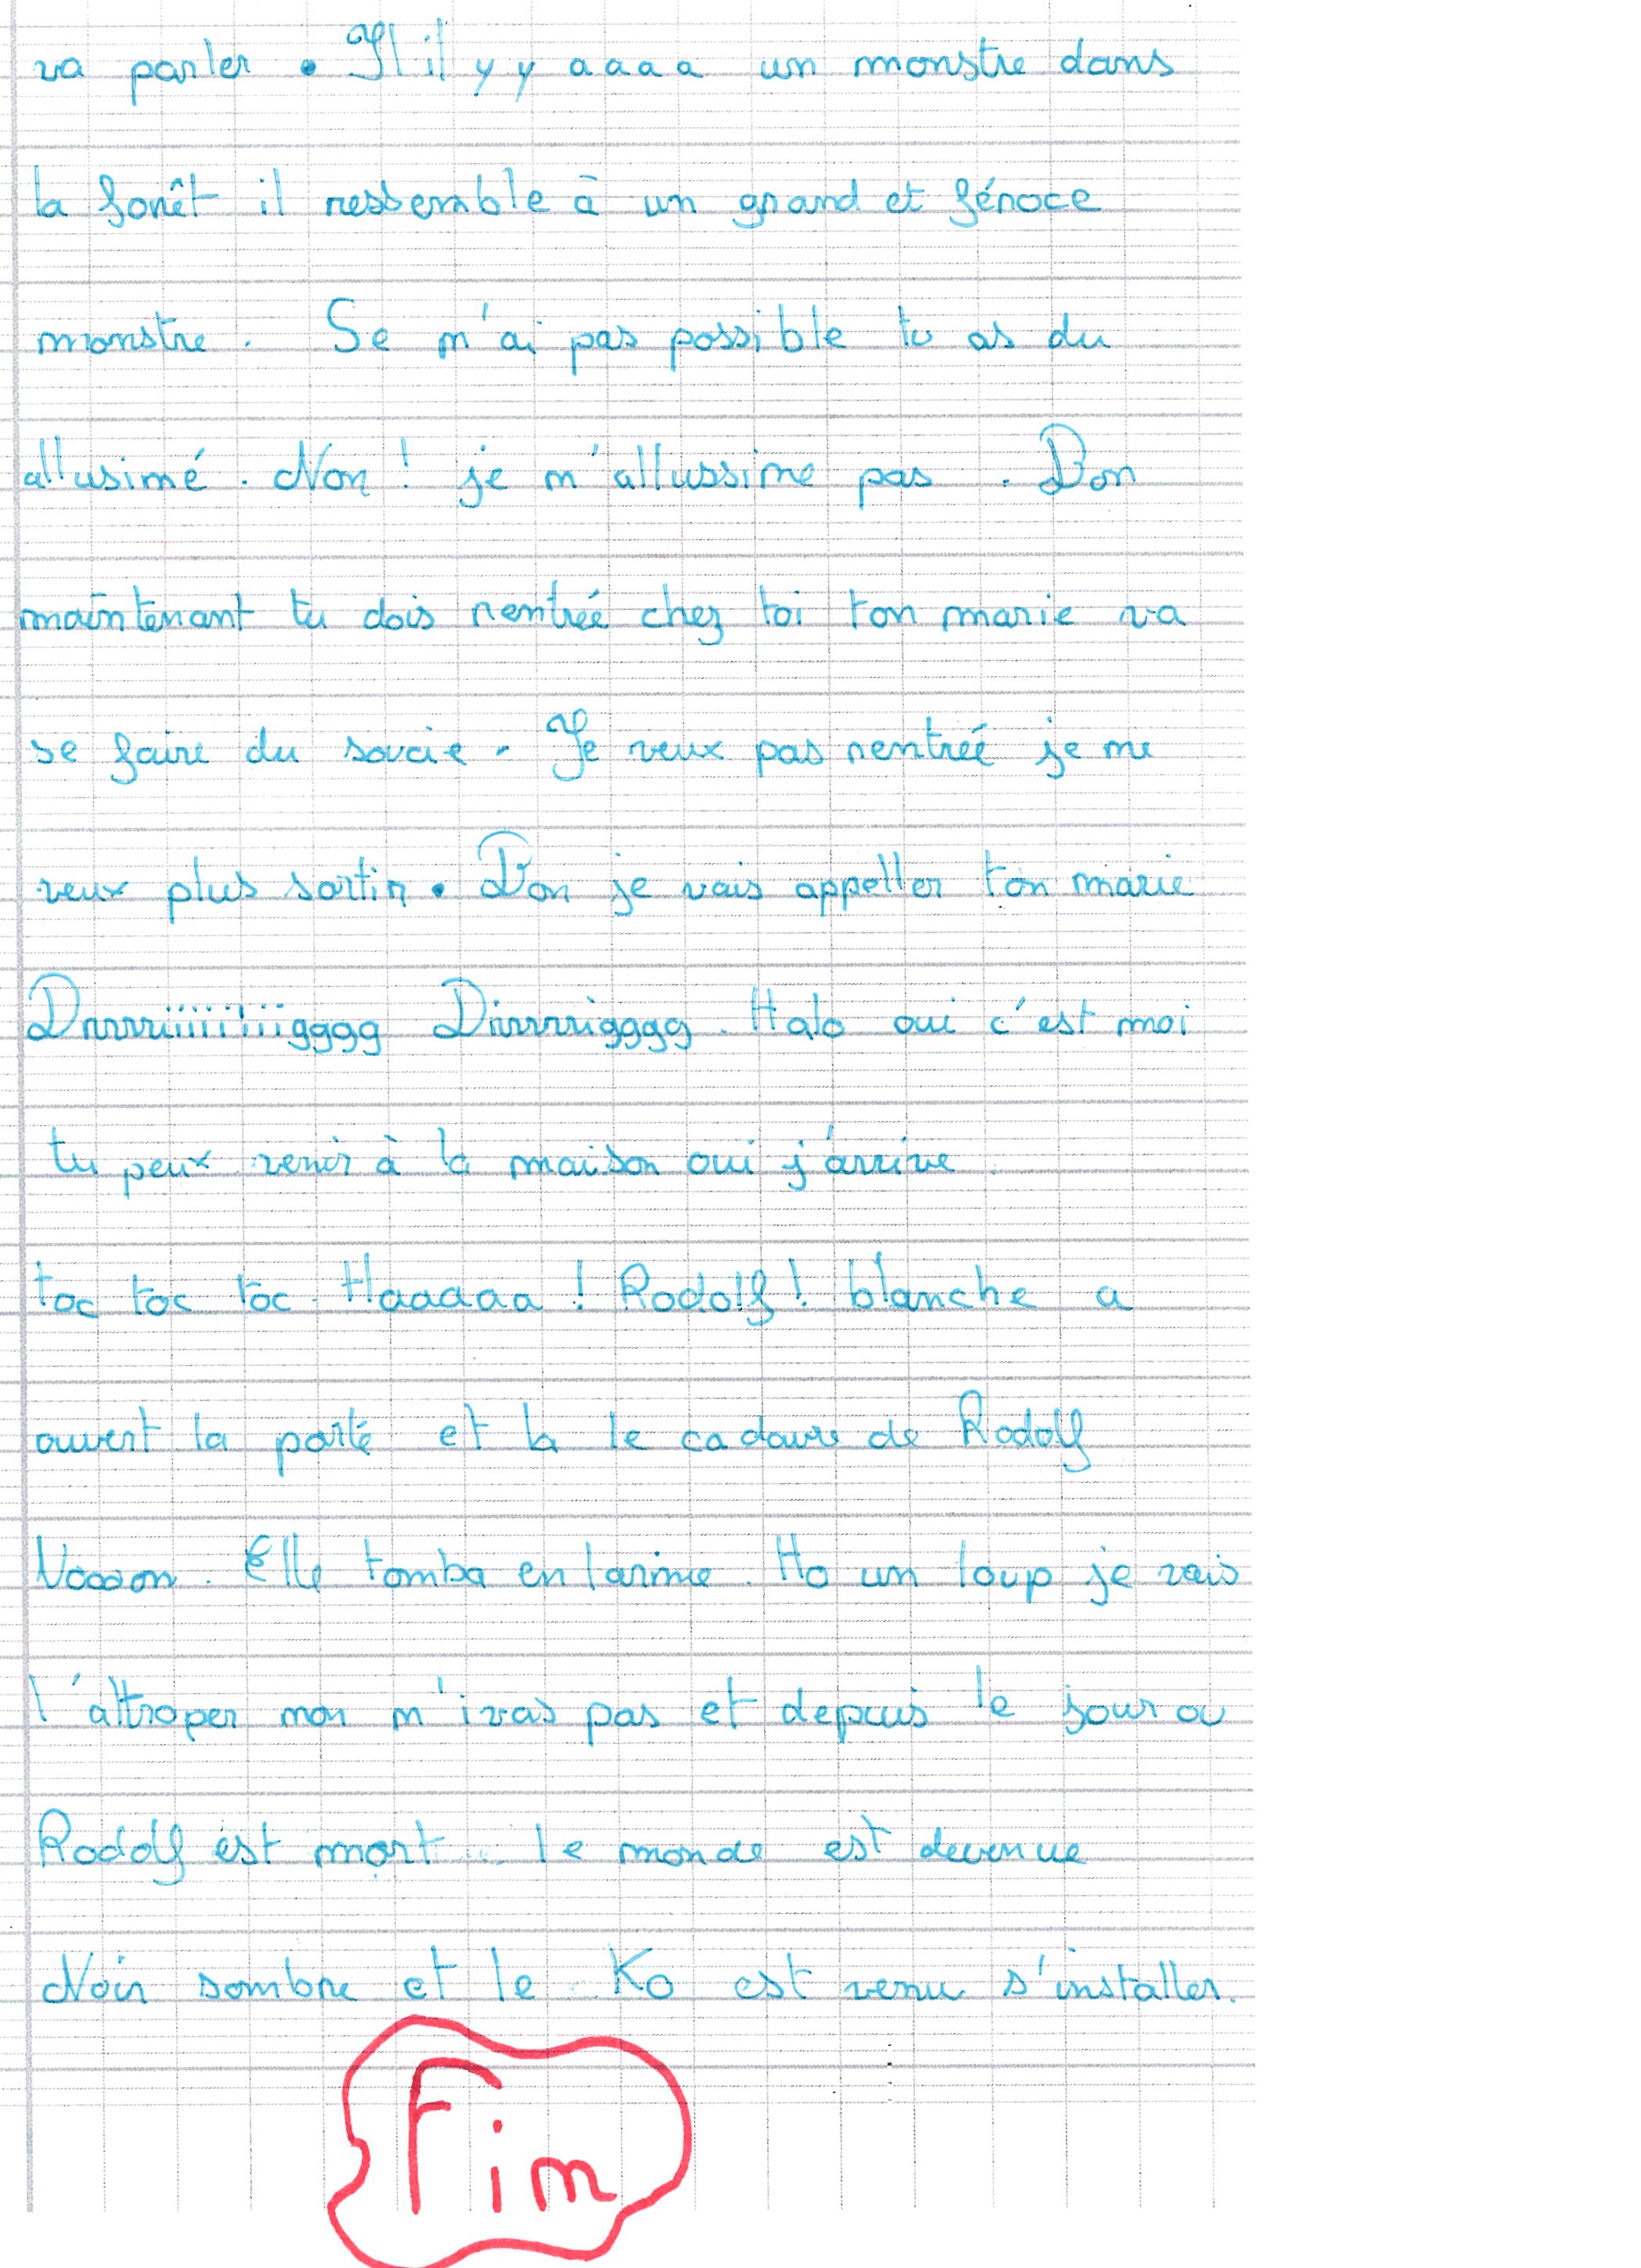 va parler . Il il y y a a a a un monstre dans
la forêt il ressemble à un grand et féroce
monstre . Se n'ai pas possible tu as du
allusimé . Non ! je n'allussine pas . Bon
maintenant tu dois rentrée chez toi ton marie va
se faire du soucie . Je veux pas rentrée je me
veux plus sortir . Bon je vais appeller ton marie
Drrrrriiiiiiiiigggg Diirrrrrigggg . Halo oui c'est moi
tu peux venir à la maison oui j'arrive .
toc toc toc . Haaaaa ! Rodolf ! blanche a
ouvert la porte et la le cadavre de Rodolf
Nooon . Elle tomba en larme . Ho un loup je vais
l'attroper non n'ivas pas et depuis le jour ou
Rodolf est mort . le monde est devenue
Noir sombre et le Ko est venu s'installer.
Fin